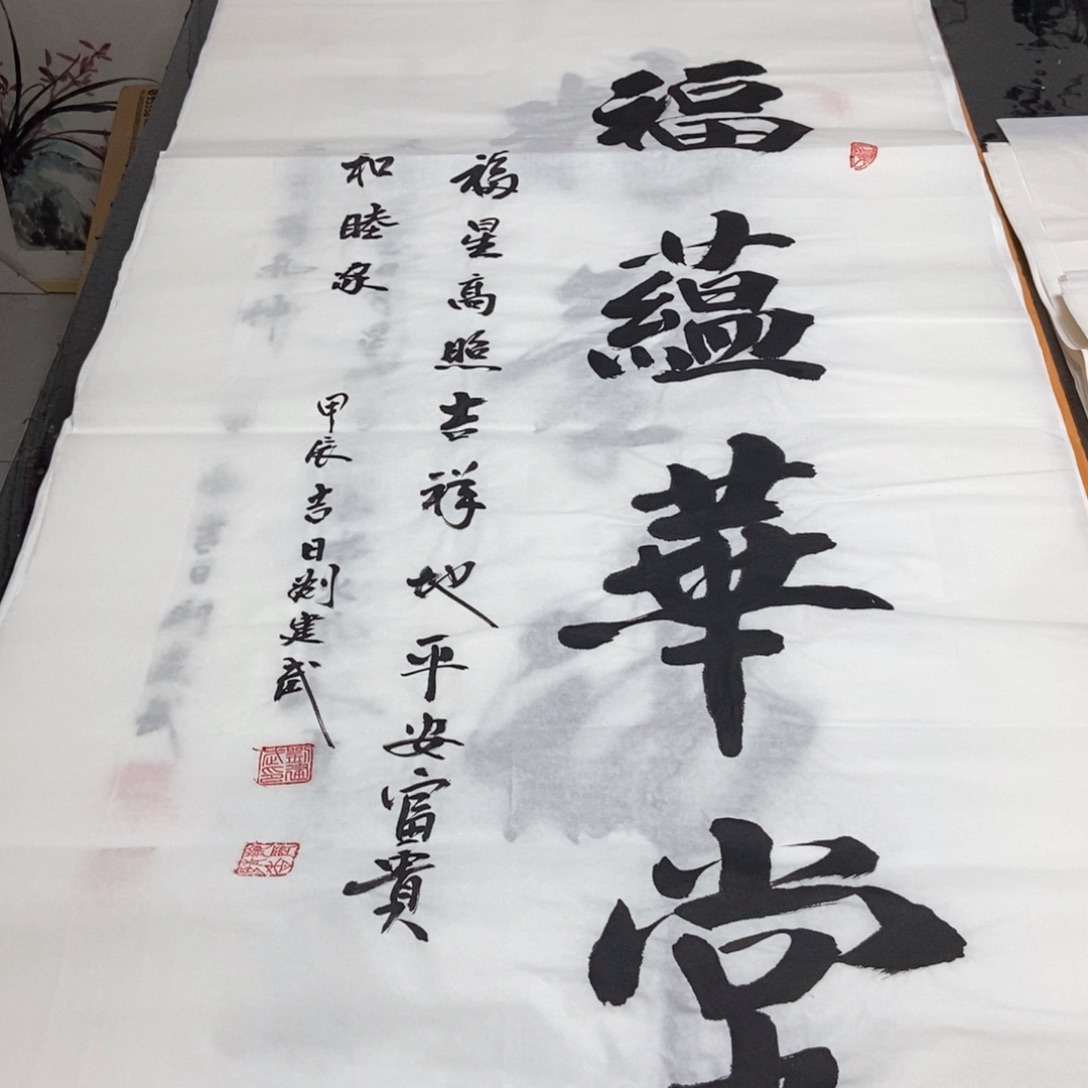 福蘊華堂
福星高照吉祥地平安富貴
和睦家
甲辰吉日劉建武